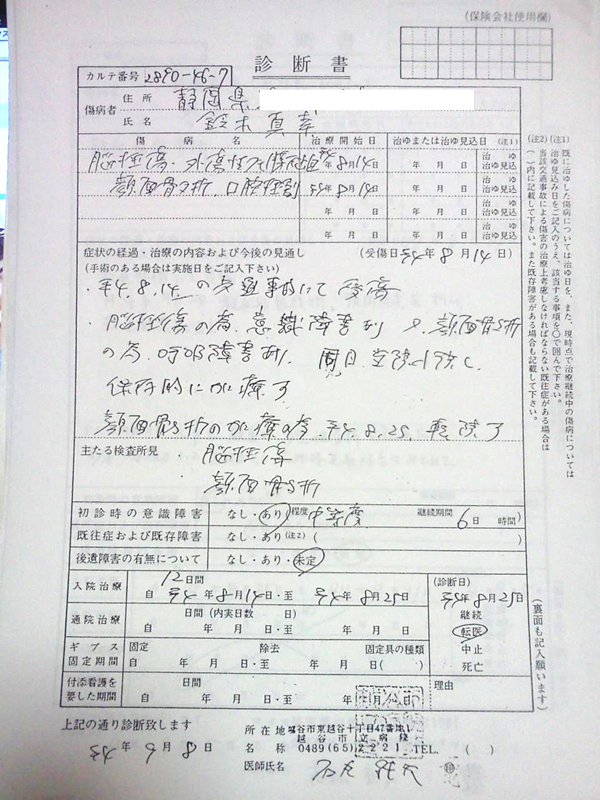 (保険会社使用欄)
診断書
カルテ番号 2890-46-7
傷病者
住所 静岡県
氏名 鈴木真幸
傷病名 治療開始日 治ゆまたは治ゆ見込日(注1)
脳挫傷・外傷性 8月14日 年 月 日 治ゆ 治ゆ見込
顔面骨々折、口腔 平4年8月14日 年 月 日 治ゆ 治ゆ見込
年 月 日 年 月 日 治ゆ 治ゆ見込
年 月 日 年 月 日 治ゆ 治ゆ見込
症状の経過・治療の内容および今後の見通し (受傷日 平4年8月14日)
(手術のある場合は実施日をご記入下さい)
・平4.8.14 の交通事故にて受傷
・脳挫傷の為、意識障害あり 又、顔面骨々折
の為、呼吸障害あり、同日 当院入院し
保存的に加療す
顔面骨々折の加療の為、平4.8.25. 転院す
主たる検査所見 ・脳挫傷
顔面骨々折
初診時の意識障害 なし・あり(程度 中等度 継続期間 6日 時間)
既往症および既存障害 なし・あり(注2)( )
後遺障害の有無について なし・あり・未定
入院治療 12日間 (診断日)
自 平4年8月14日・至 平4年8月25日 平4年8月25日
通院治療 日間(内実日数 日) 継続
自 年 月 日・至 年 月 日 転医
ギプス固定期間 固定 除去 固定具の種類 中止
自 年 月 日・至 年 月 日( ) 死亡
付添看護を要した期間 日間 理由
自 年 月 日・至 年 月 日
上記の通り診断致します
平4年9月8日
所在地 越谷市東越谷十丁目47番地1
名称 越谷市立病院
0489(65)2221 TEL. ( )
医師氏名 印
(注1) 既に治ゆした傷病については治ゆ日を、また、現時点で治療継続中の傷病については
治ゆ見込み日をご記入のうえ、該当する事項を○で囲んで下さい。
(注2) 当該交通事故による傷害の治療上考慮しなければならない既往症がある場合は
( )内に記載して下さい。また既存障害がある場合も記載して下さい。
(裏面も記入願います)